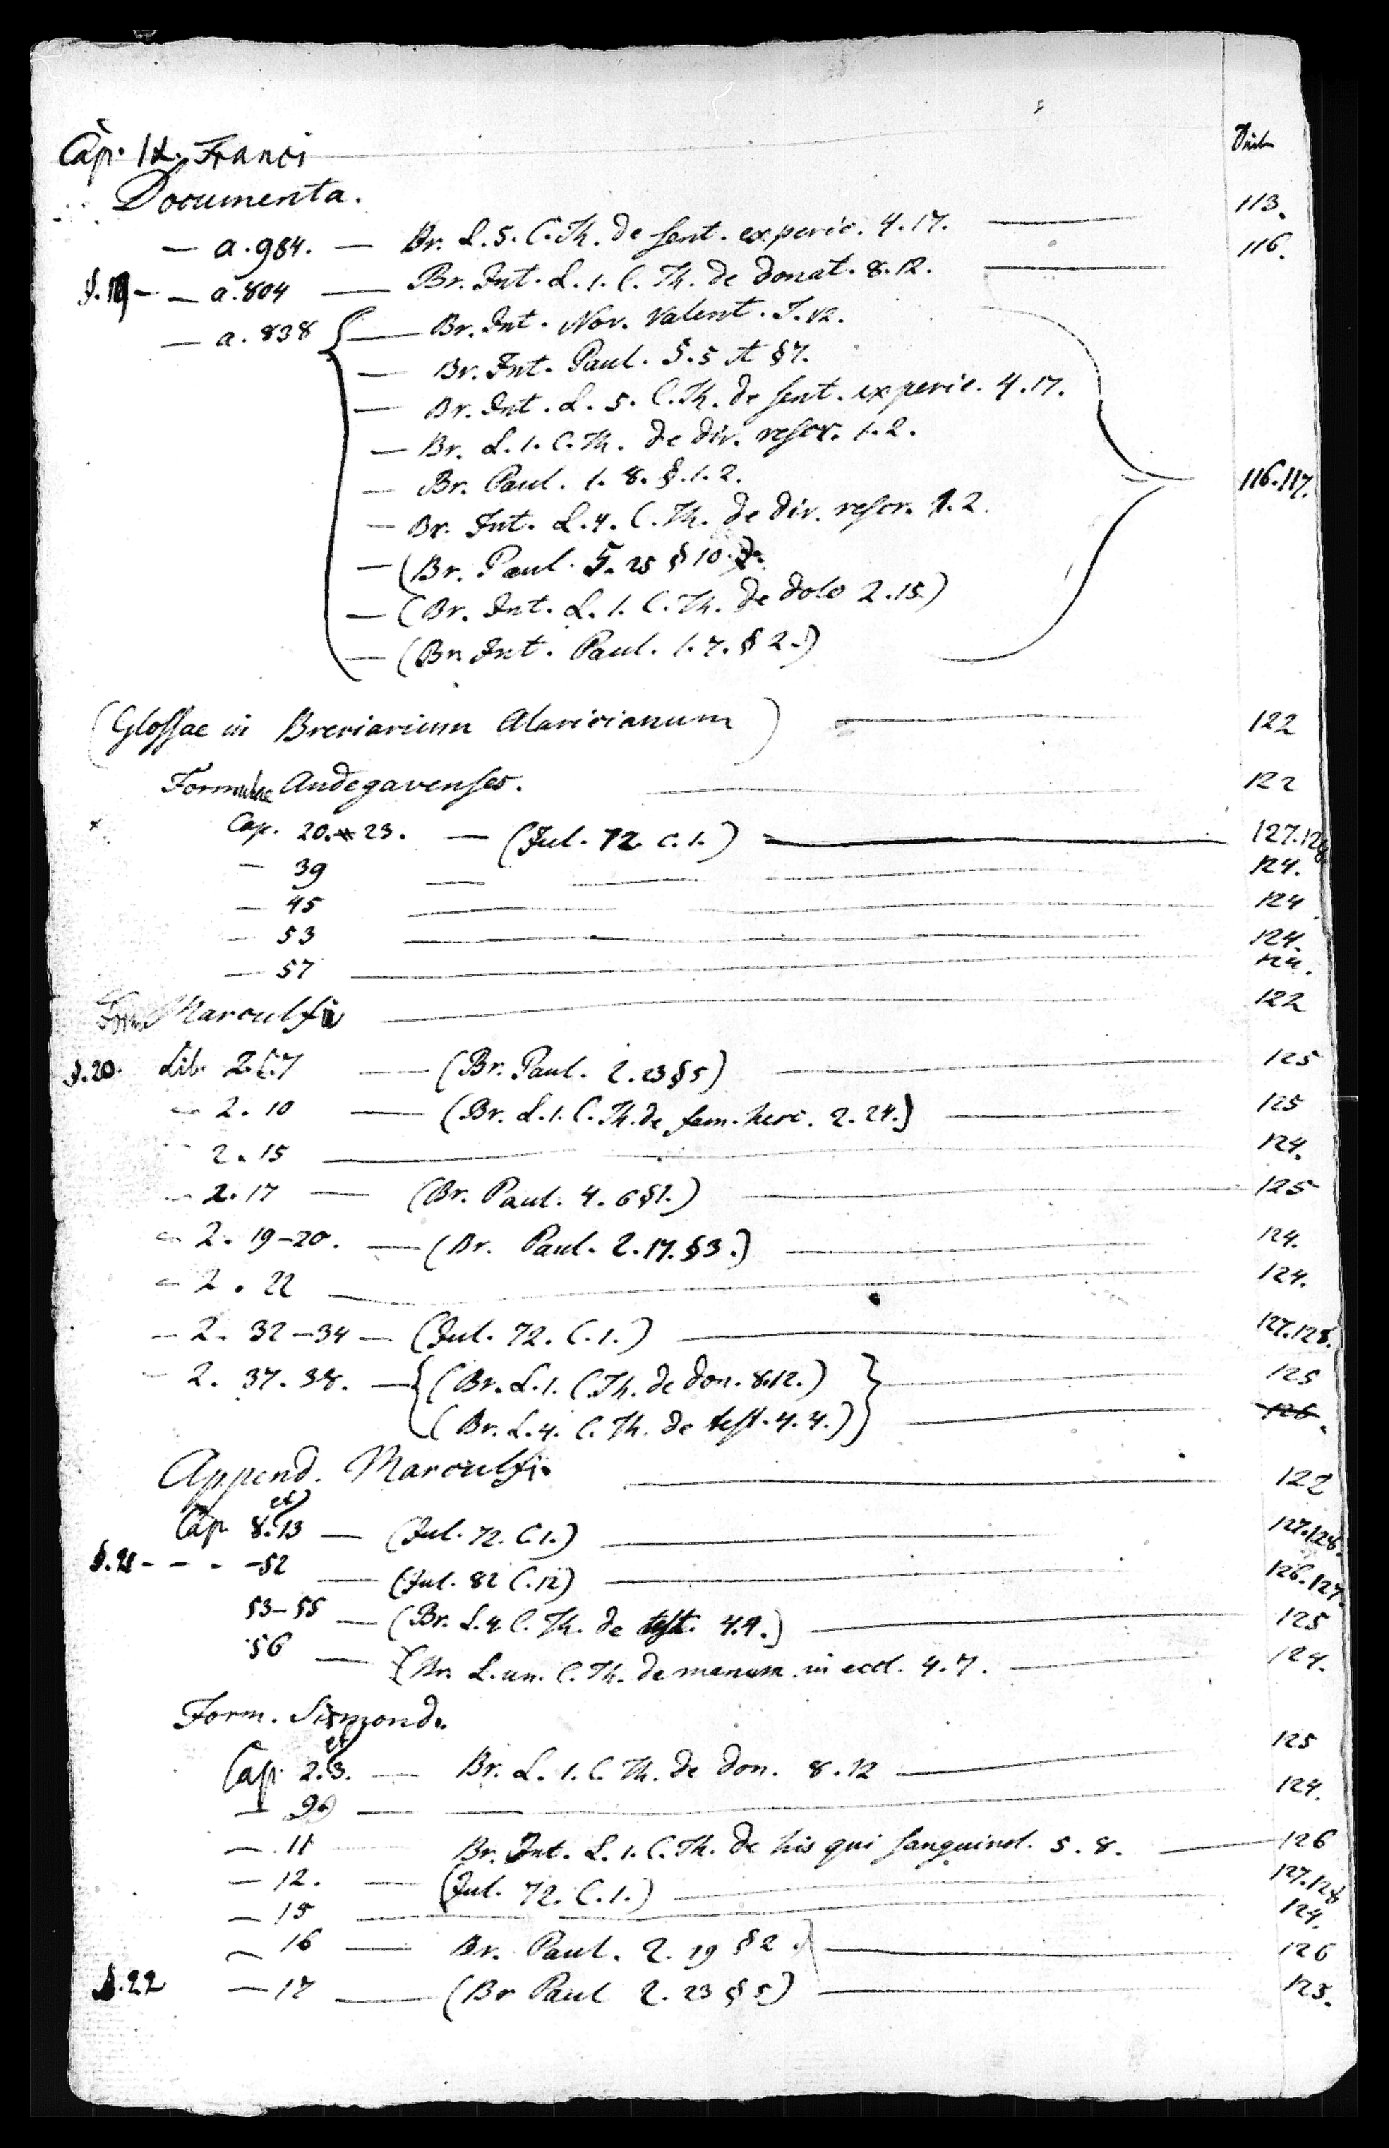 Cap. IX. Franci
Documenta.
— a. 984. — Br. L. 5. C. Th. de sent. ex peric. 4. 17. — 113.
S. 19 — — a. 804 — Br. Int. L. 1. C. Th. de donat. 8. 12. — 116.
— a. 838 { — Br. Int. Nov. Valent. T. 12.
— Br. Int. Paul. 5. 5 et § 7.
— Br. Int. L. 5. C. Th. de sent. ex peric. 4. 17.
— Br. L. 1. C. Th. de div. rescr. 1. 2.
— Br. Paul. 1. 8. §. 1. 2. 116. 117.
— Br. Int. L. 4. C. Th. de div. rescr. 1. 2.
— (Br. Paul. 5. 25 § 10.)
— (Br. Int. L. 1. C. Th. de dolo 2. 15.)
— (Br. Int. Paul. 1. 7. § 2.)
(Glossae in Breviarium Alaricianum) — 122
Formulae Andegavenses. — 122
Cap. 20. 23. — (Jul. 72. c. 1.) — 127. 128
— 39 — 124.
— 45 — 124
— 53 — 124.
— 57 — 124.
Form. Marculfi — 122
S. 20. Lib. 2. C. 7 — (Br. Paul. 2. 23 § 5) — 125
— 2. 10 — (Br. L. 1. C. Th. de fam. herc. 2. 24.) — 125
— 2. 15 — 124.
— 2. 17 — (Br. Paul. 4. 6 § 1.) — 125
— 2. 19-20. — (Br. Paul. 2. 17. § 3.) — 124.
— 2. 22 — 124.
— 2. 32-34 — (Jul. 72. C. 1.) — 127. 128.
— 2. 37. 38. — { (Br. L. 1. C. Th. de don. 8. 12.) } — 125
(Br. L. 4. C. Th. de test. 4. 4.) — 126.
Append. Marculfi — 122
Cap. 8. et 13 — (Jul. 72. C. 1.) — 127. 128.
S. 21 - - - - 52 — (Jul. 82 C. 12) — 126. 127.
53-55 — (Br. L. 4. C. Th. de test. 4. 4.) — 125
56 — (Br. L. un. C. Th. de manum. in eccl. 4. 7. — 124.
Form. Sirmond.
Cap. 2. et 3. — Br. L. 1. C. Th. de don. 8. 12 — 125
— 9 — 124.
— 11 Br. Int. L. 1. C. Th. de his qui sanguinol. 5. 8. — 126
— 12. — (Jul. 72. C. 1.) — 127. 128
— 15 — 124.
— 16 — Br. Paul. 2. 19 § 2. — 126
S. 22 — 17 — (Br Paul 2. 23 § 5) — 125.